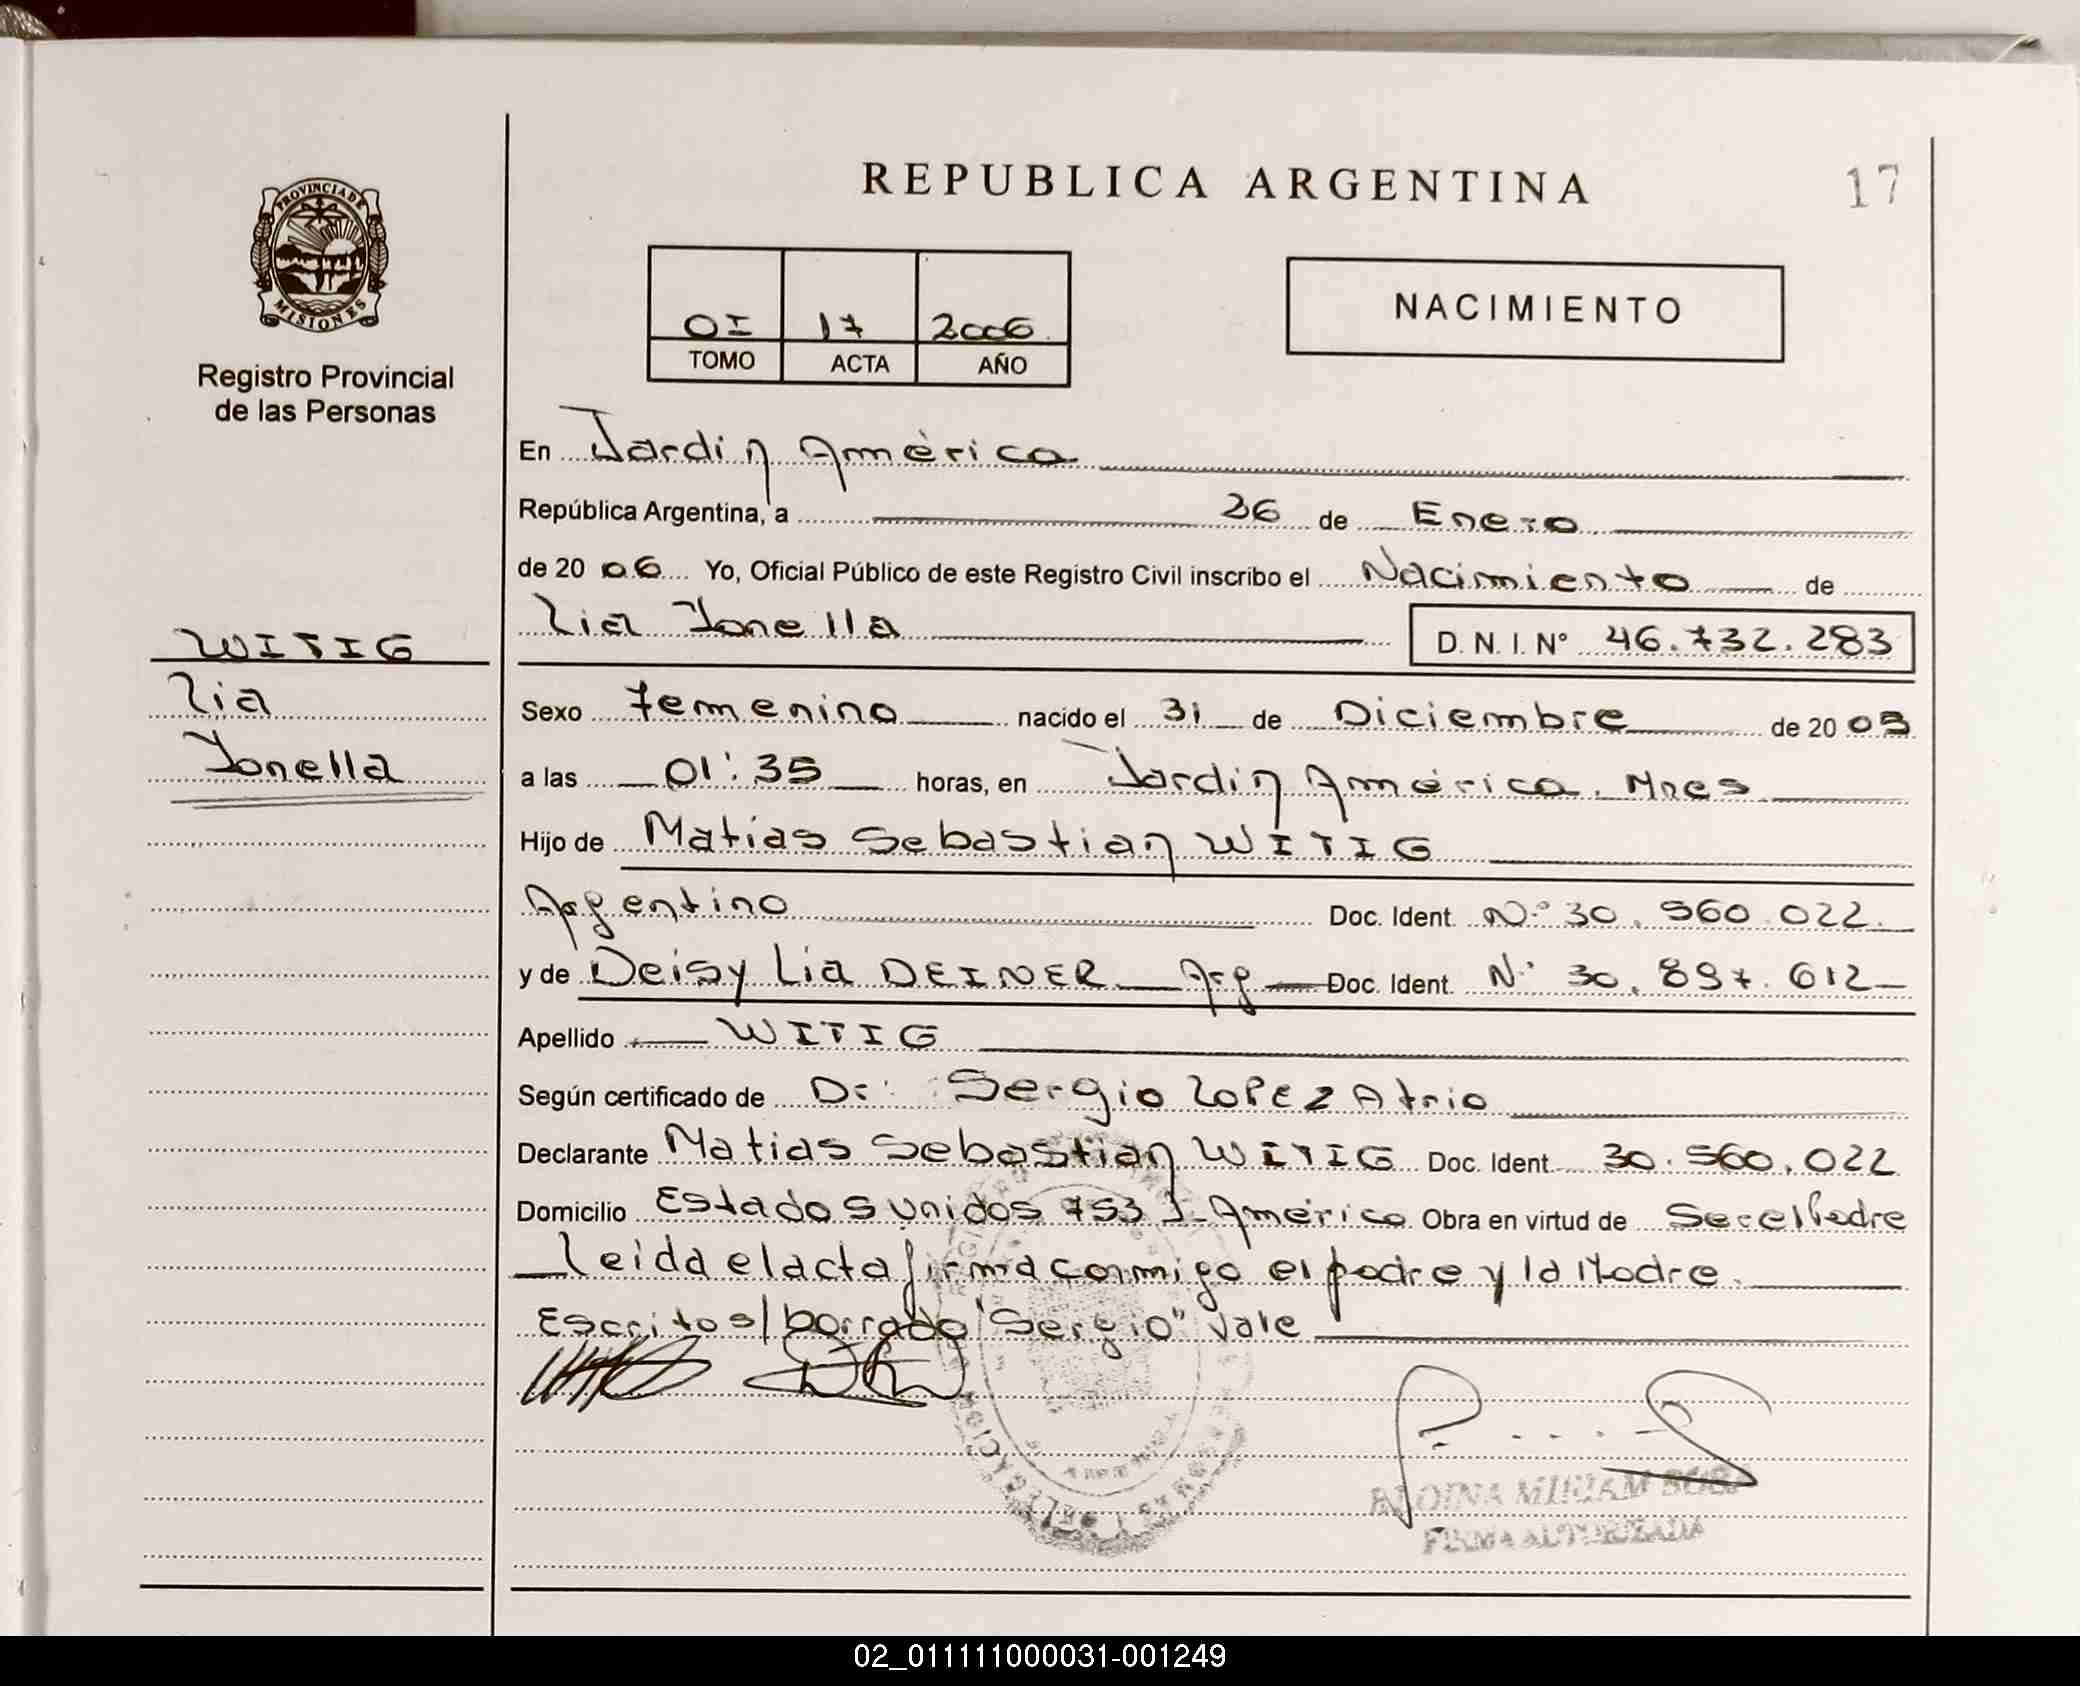 REPUBLICA ARGENTINA
17
PROVINCIA DE
MISIONES
Registro Provincial
de las Personas
OI 17 2006
TOMO ACTA AÑO
NACIMIENTO
En Jardin América
República Argentina, a 26 de Enero
de 20 06 Yo, Oficial Público de este Registro Civil inscribo el Nacimiento de
Lia Yonella D. N. I. N° 46.732.283
WITIG
Lia
Yonella
Sexo Femenino nacido el 31 de Diciembre de 20 05
a las 01:35 horas, en Jardin América. Mnes
Hijo de Matias Sebastian WITIG
Argentino Doc. Ident. N° 30.560.022.
y de Deisy Lia DEINER Arg Doc. Ident. N° 30.897.612
Apellido WITIG
Según certificado de Dr: Sergio LOPEZ Atrio
Declarante Matias Sebastian WITIG Doc. Ident. 30.560.022
Domicilio Estados Unidos 753 J. América Obra en virtud de Ser el Padre
Leida el acta firma conmigo el padre y la Madre.
Escritos/borrado "Sergio" Vale
MIRIAM
FIRMA AUTORIZADA
02_011111000031-001249